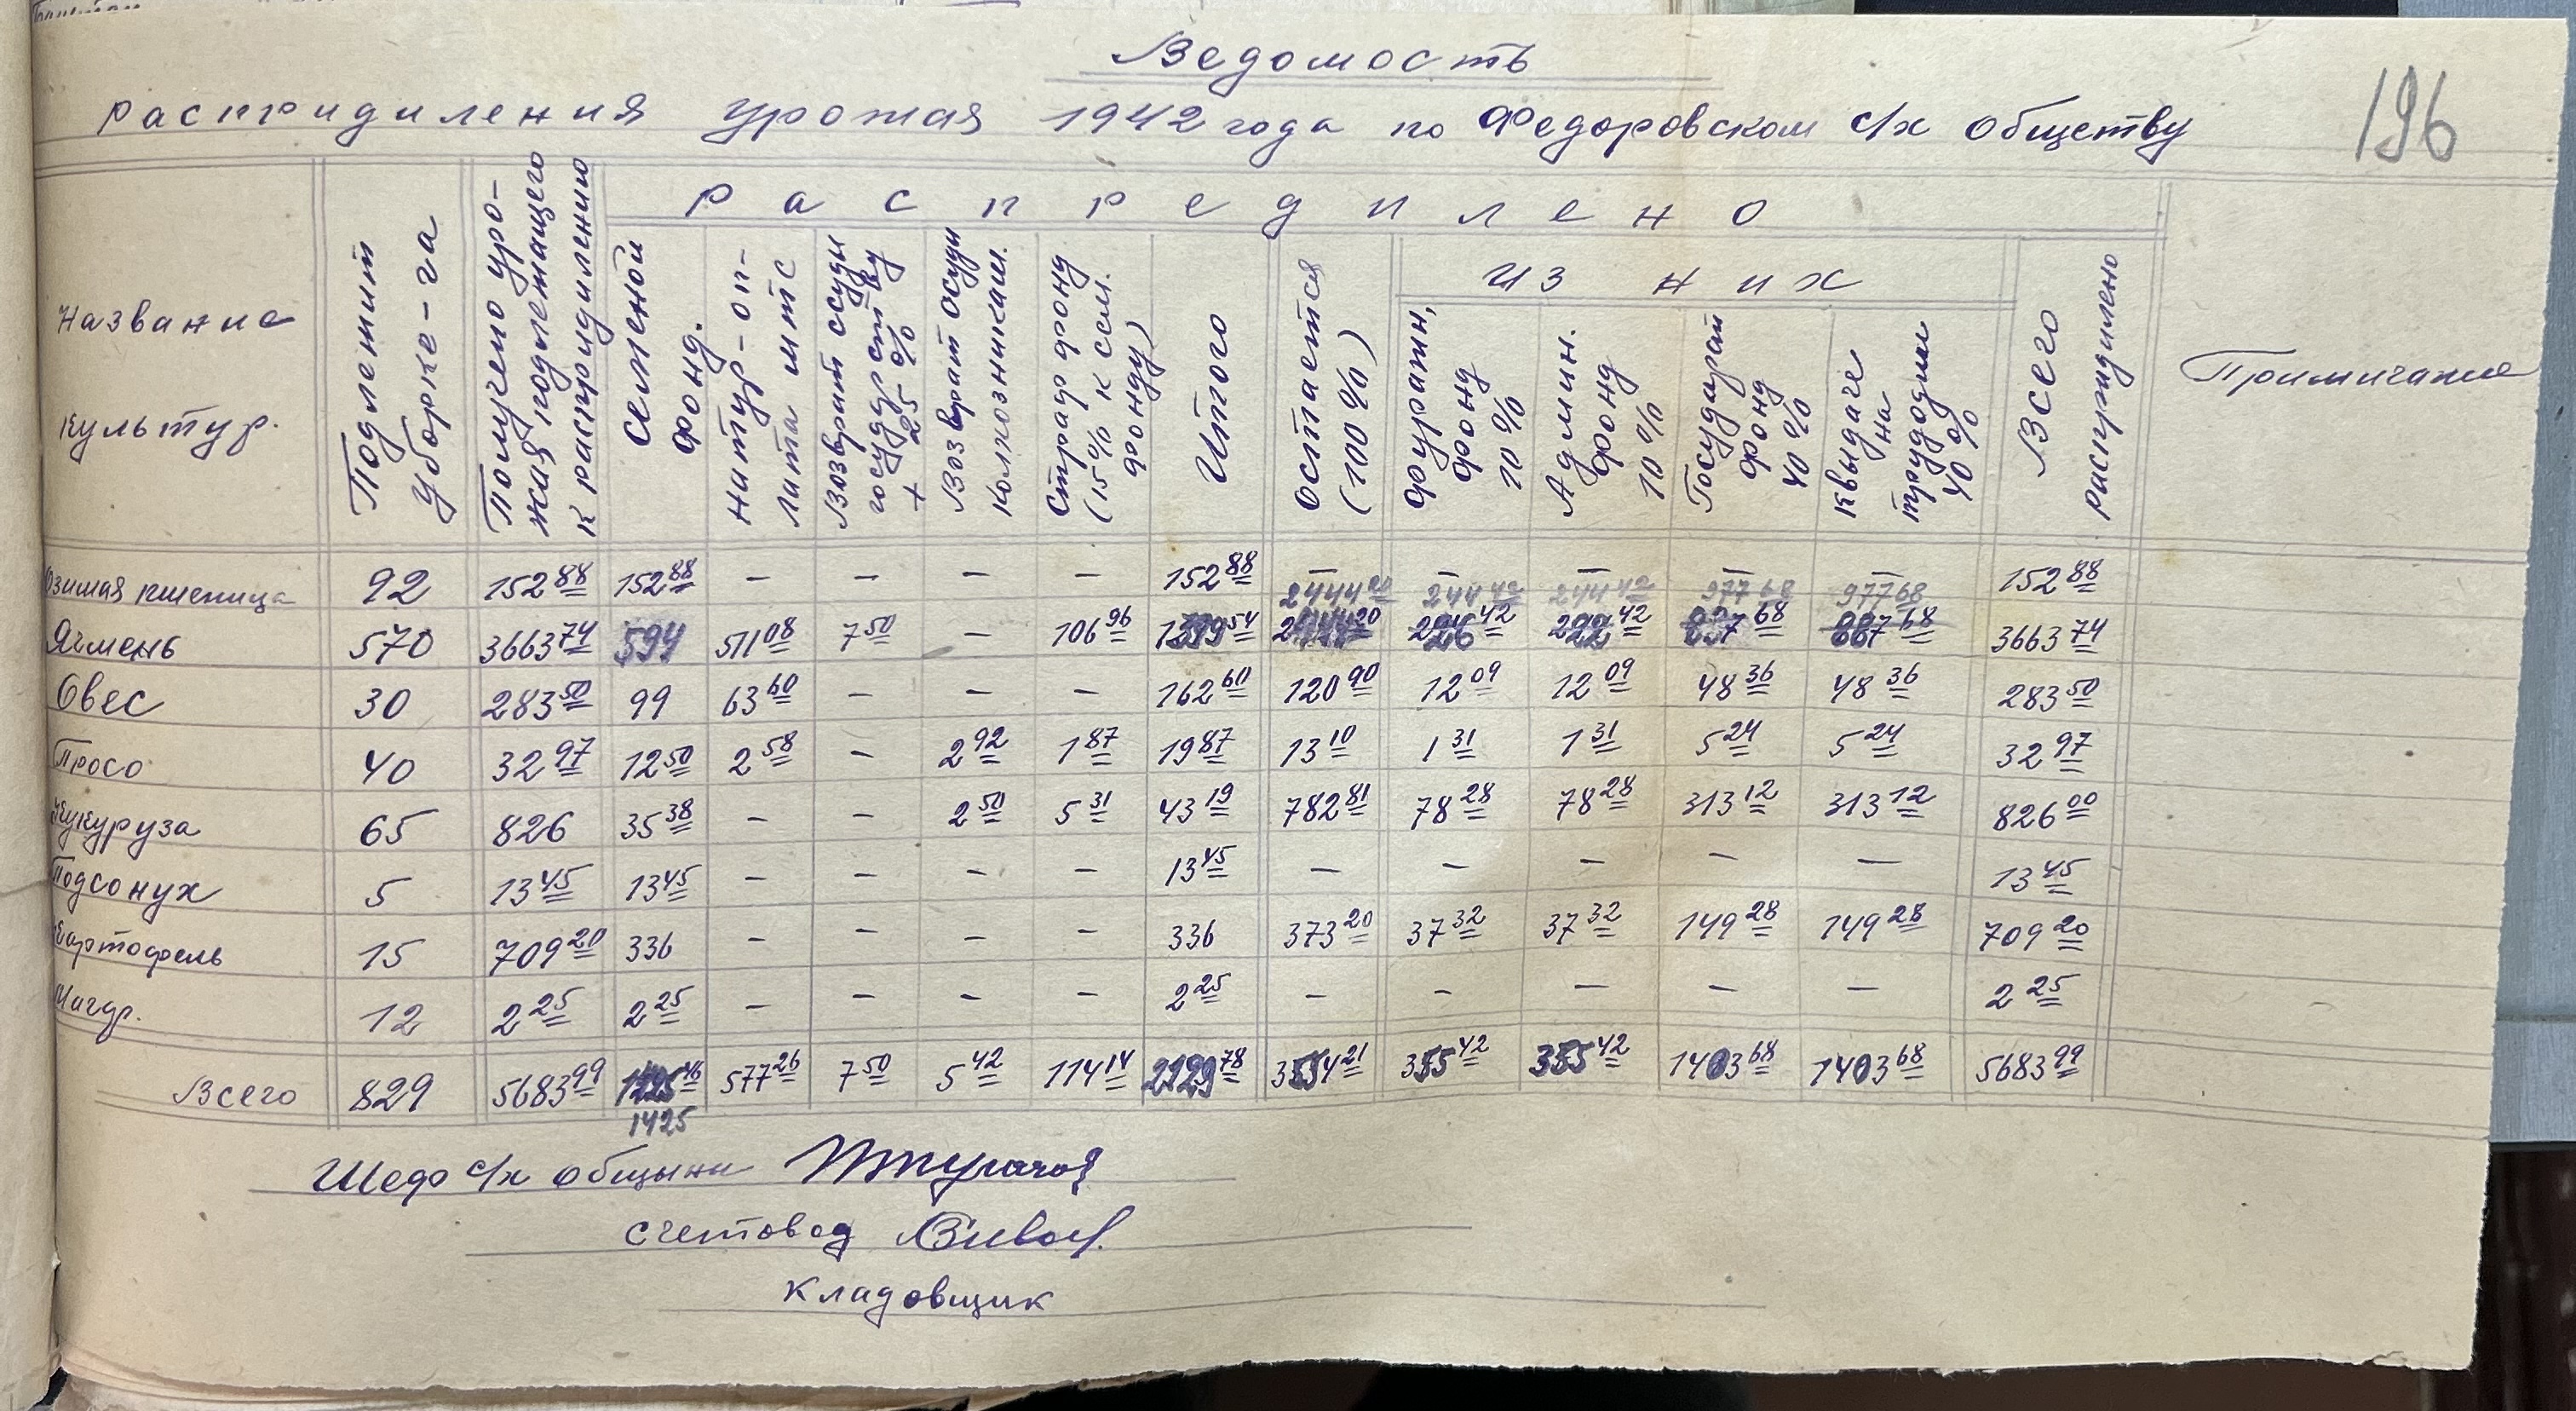 196
Ведомость
распридиления урожая 1942 года по Федоровском с/х обществу
Название культур.
Подлежит уборке-га
Получено уро-
жая подлежащего
к распридилению
Распредилено
Семеной фонд.
натур-оп-
лата мтс
Возврат ссуды
государству
+ 25%
Возврат ссуди
колхозникам.
страд фонд
(15% к сем.
фонду)
Итого
остается
(100%)
из них
фуражн,
фонд
10%
Админ.
фонд
10%
Государст
фонд
40%
к выдаче
на
трудодни
40%
Всего
распридилено
Примичание
Озимая пшеница 92 152 88 152 88 – – – – 152 88 – – – – – 152 88
2444 20 244 42 244 42 977 68 977 68
Ячмень 570 3663 74 594 511 08 7 50 – 106 96 3663 74
Овес 30 283 50 99 63 60 – – – 162 60 120 90 12 09 12 09 48 36 48 36 283 50
Просо 40 32 97 12 50 2 58 – 2 92 1 87 19 87 13 10 1 31 1 31 5 24 5 24 32 97
Кукуруза 65 826 35 38 – – 2 50 5 31 43 19 782 81 78 28 78 28 313 12 313 12 826 00
Подсонух 5 13 45 13 45 – – – – 13 45 – – – – – 13 45
Картофель 15 709 20 336 – – – – 336 373 20 37 32 37 32 149 28 149 28 709 20
12 2 25 2 25 – – – – 2 25 – – – – – 2 25
Всего 829 5683 99 577 26 7 50 5 42 114 14 3554 21 355 42 355 42 1403 68 1403 68 5683 99
1425
Шеф с/х общыни
счетовод
Кладовщик